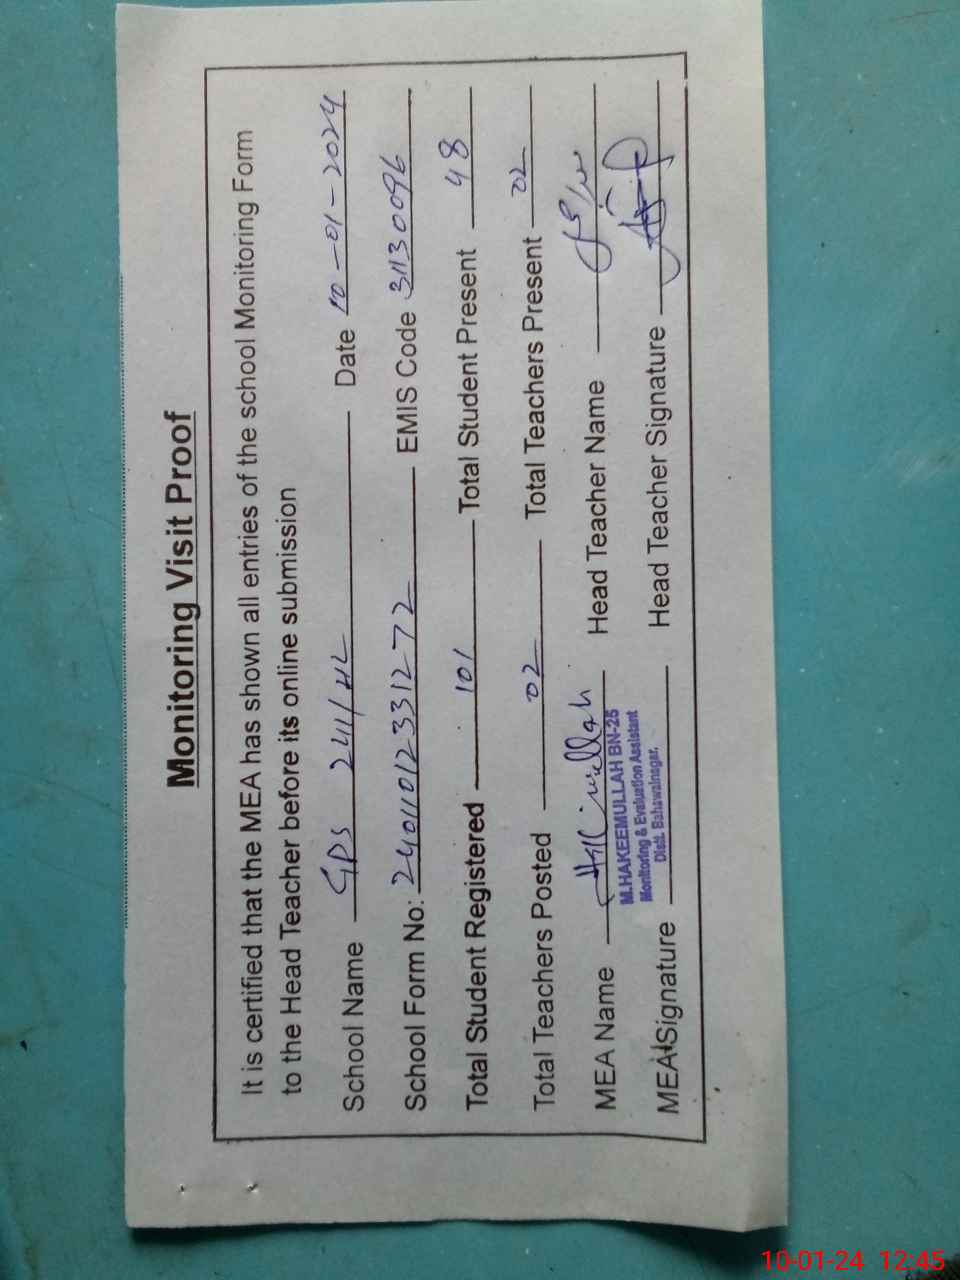 Monitoring Visit Proof
It is certified that the MEA has shown all entries of the school Monitoring Form
to the Head Teacher before its online submission
School Name GPS 241/HL Date 10-01-2024
School Form No: 24011012331272 EMIS Code 31130096
Total Student Registered 101 Total Student Present 48
Total Teachers Posted 02 Total Teachers Present 02
MEA Name Head Teacher Name
M.HAKEEMULLAH BN-25
Monitoring & Evaluation Assistant
Distt. Bahawalnagar.
MEA Signature Head Teacher Signature
10-01-24 12:45